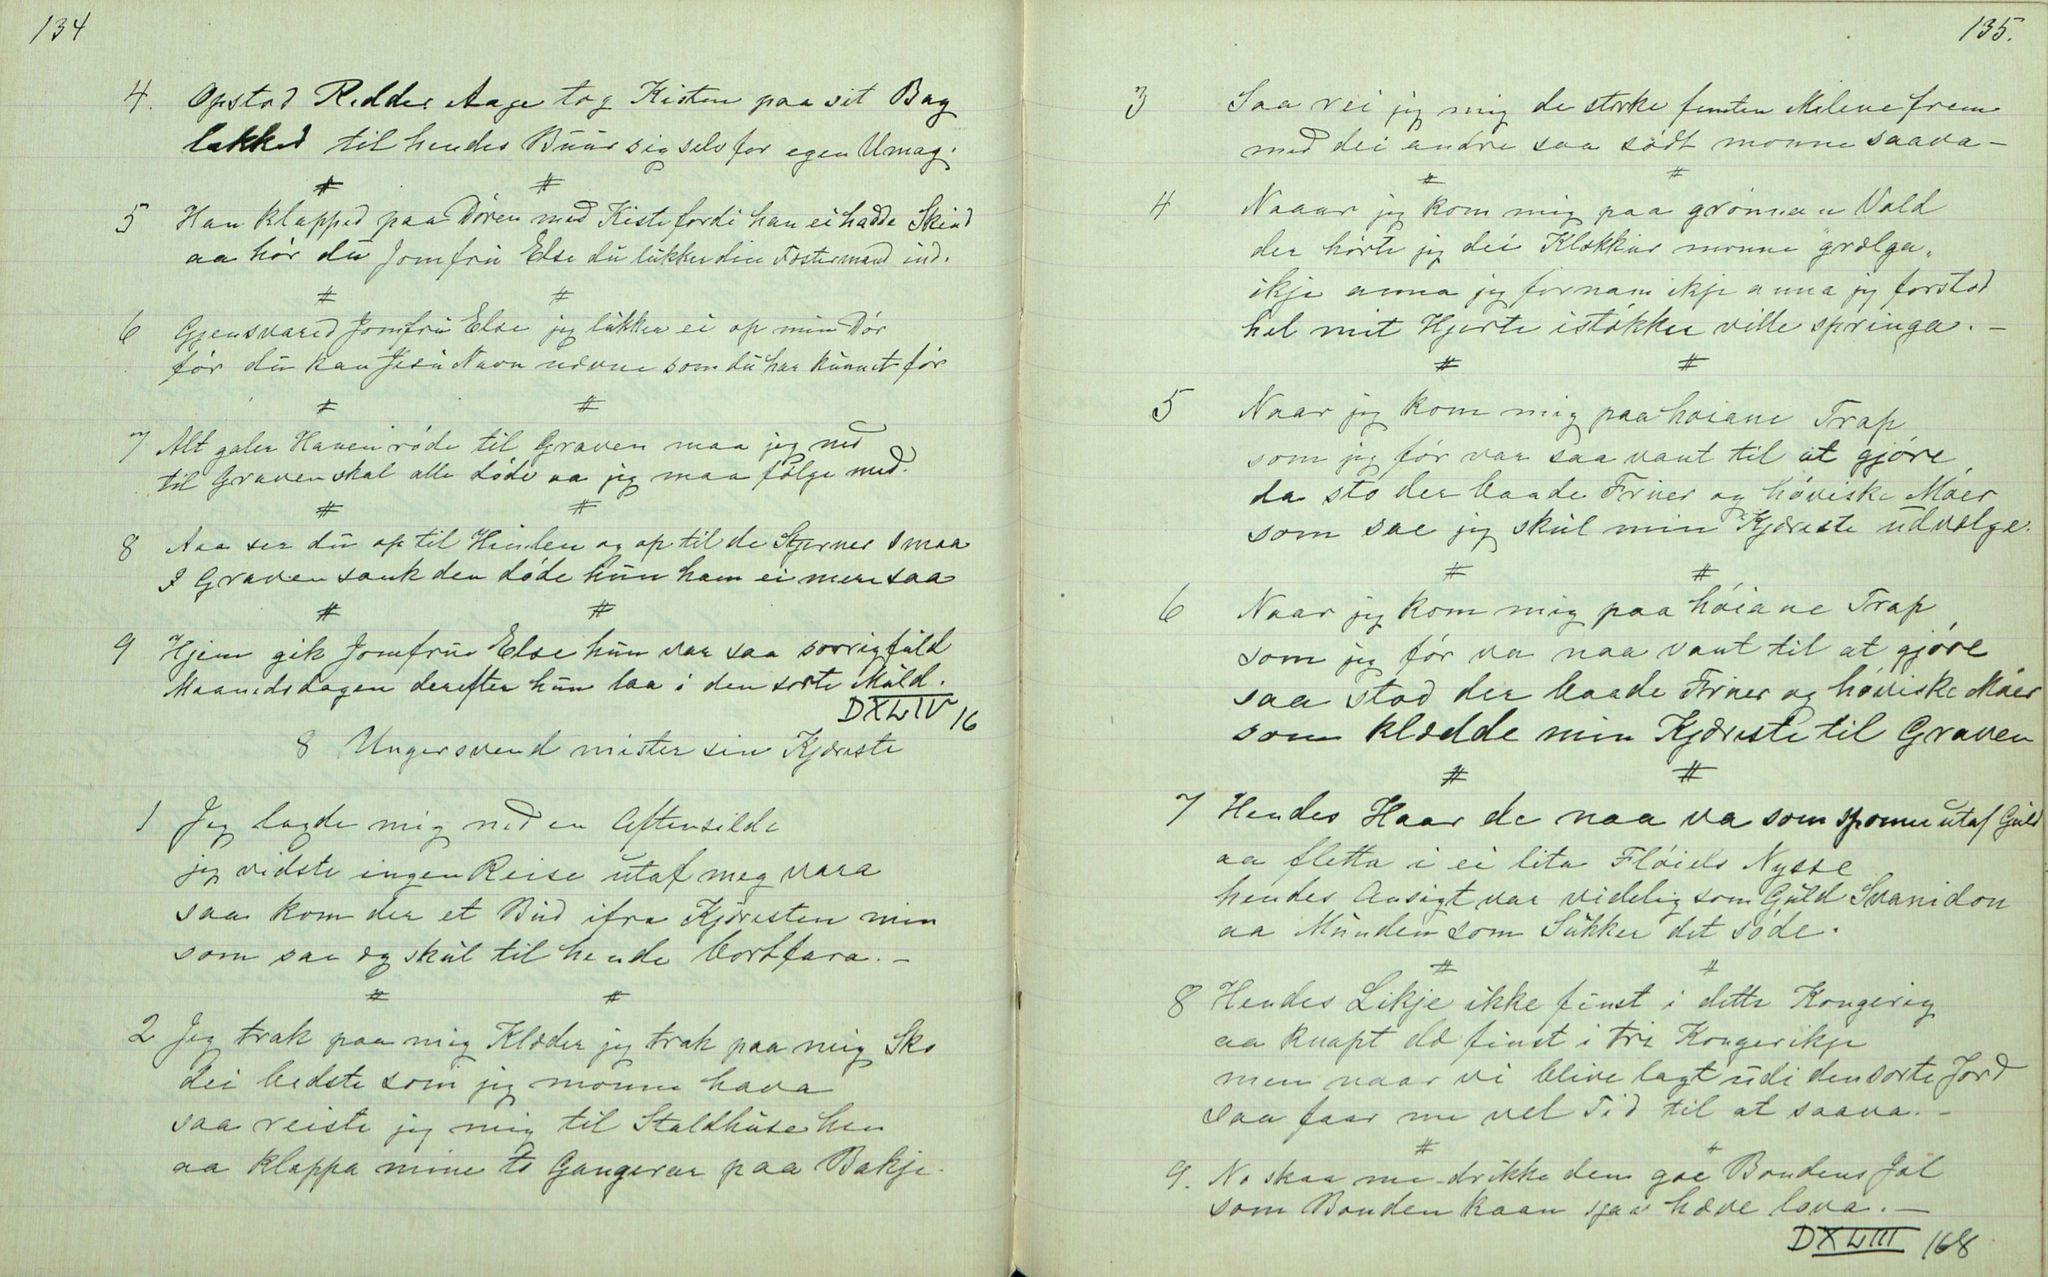 134
4. Opstod Redder Aage tog Kisten paa sit Bag
lakked til hendes Buur sig selv for egen Umag.
# #
5 Han klapped paa Dören med Kiste fordi han ei hadde Skind
aa hör du Jomfru Else du lukker din Fæstermand ind.
# #
6 Gjensvared Jomfru Else jeg lukker ei op min Dör
för du kan Jesu Navn nævne som du har kunnet för
# #
7 Alt galer Hanen röde til Graven maa jeg ned
til Graven skal alle döde aa jeg maa fölge med.
# #
8 Aa ser du op til Himlen og op til de Stjerner smaa
I Graven sank den döde hun ham ei mere saa
# #
9 Hjem gik Jomfru Else hun var saa sorrigfuld
Maanedsdagen derefter hun laa i den sorte Muld.
DXLIV 16
8 Ungersvend mister sin Kjæreste
1 Jeg lagde mig ned en Aftensilde
jeg vidste ingen Reise utaf meg vara
saa kom der et Bud ifra Kjæresten min
som sae eg skul til hende bortfara. –
# #
2 Jeg trak paa mig Klæder jeg trak paa mig Sko
dei bedste som jeg monne hava
saa reiste jeg mig til Staldhuse hen
aa klappa mine to Gangerar paa Bakje.
135.
3 Saa rei jeg mig de storke femten Milene frem
med dei andre saa södt monne saava –
# #
4 Naaar jeg kom mig paa grönnan Vald
der hörte jeg dei Klokkur monne "grælga"
ikje anna jeg fornam ikje anna jeg forstod
hel mit Hjerte istökker ville springa. –
# #
5 Naar jeg kom mig paa höiane Trap
som jeg för var saa vant til at gjöre
da sto der baade Friuer og höviske Möer
som sae jeg skul min Kjæreste udvælge.
# #
6 Naar jeg kom mig paa höiane Trap
som jeg för va naa vant til at gjöre
saa stod der baade Friuer og höviske Möer
som klædde min Kjæreste til Graven
# #
7 Hendes Haar de naa va som sponne utaf Guld
aa fletta i ei lita Flöiels Nysse
hendes Ansigt var videlig som Guld Svanidon
aa Munden som Sukker det söde.
# #
8 Hendes Likje ikke finst i dette Kongerig
aa knapt dæ finst i tri Kongerikje
men naar vi blive lagt udi den sorte Jord
saa faar me vel Tid til at saava. –
# #
9. No skaa me drikke dem goe Bondens Jol
som Bonden kaan sjav hæve lova. –
DXLIII 168